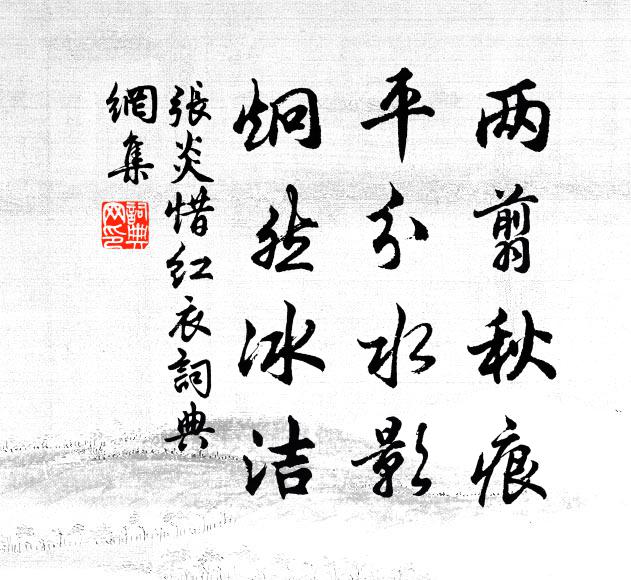 两翦秋痕
平分水影
炯然冰洁
張炎惜红衣詞典
網集
詞典
网印